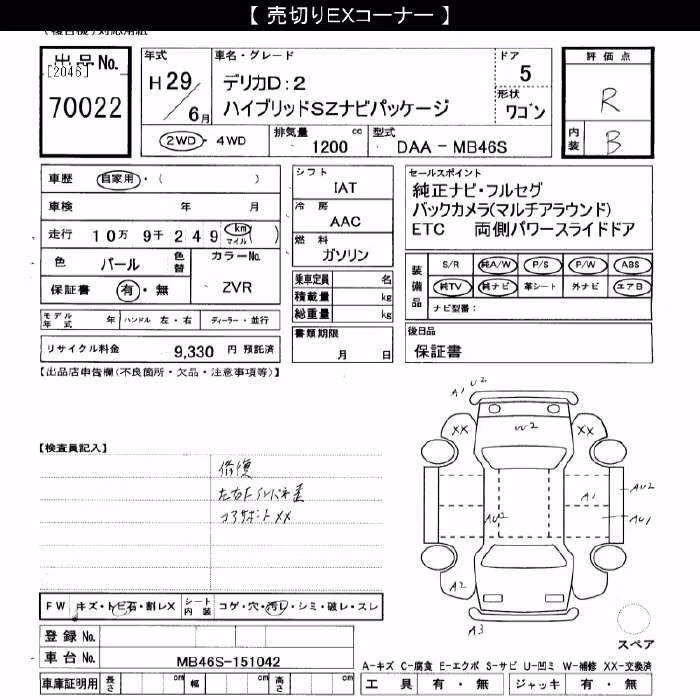 【 売切りEXコーナー 】
出品No.
[2046]
70022
年式
H 29 / 6月
車名・グレード
デリカD:2
ハイブリッドSZナビパッケージ
ドア
5
形状
ワゴン
評価点
R
内装
B
2WD・4WD
排気量
1200 cc
型式
DAA - MB46S
車歴 自家用・( )
車検 年 月
走行 10万 9千 2 4 9 km マイル )
色 パール 色替
カラーNo.
ZVR
保証書 有・無
モデル年式 年 ハンドル 左・右 ディーラー・並行
リサイクル料金 9,330 円 預託済
シフト
IAT
冷房
AAC
燃料
ガソリン
乗車定員 名
積載量 kg
総重量 kg
書類期限
月 日
セールスポイント
純正ナビ・フルセグ
バックカメラ(マルチアラウンド)
ETC 両側パワースライドドア
装備品
S/R 純A/W P/S P/W ABS
純TV 純ナビ 革シート 外ナビ エアB
ナビ型番:
後日品
保証書
【出品店申告欄(不良箇所・欠品・注意事項等)】
【検査員記入】
修復
コアサポートXX
A1 U2
XX
W2
XX
A1
AU2
AU2
AU1
A2
A2
A3
スペア
FW キズ・トビ石・割レX シート内装 コゲ・穴・汚レ・シミ・破レ・スレ
登録No.
車台No. MB46S-151042
車庫証明用 長さ cm 幅 cm 高さ cm
A-キズ C-腐食 E-エクボ S-サビ U-凹ミ W-補修 XX-交換済
工具 有・無 ジャッキ 有・無